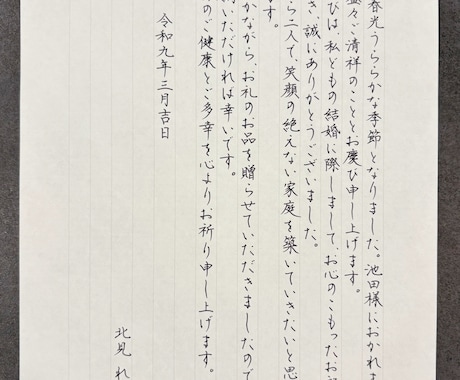 春光うららかな季節となりました。池田様におかれま
益々ご清祥のこととお慶び申し上げます。
びは、私どもの結婚に際しまして、お心のこもったお
き、誠にありがとうございました。
ら二人で笑顔の絶えない家庭を築いていきたいと思
す。
かながら、お礼のお品を贈らせていただきましたので
いただければ幸いです。
のご健康とご多幸を心よりお祈り申し上げます。
令和九年三月吉日
北見 れ